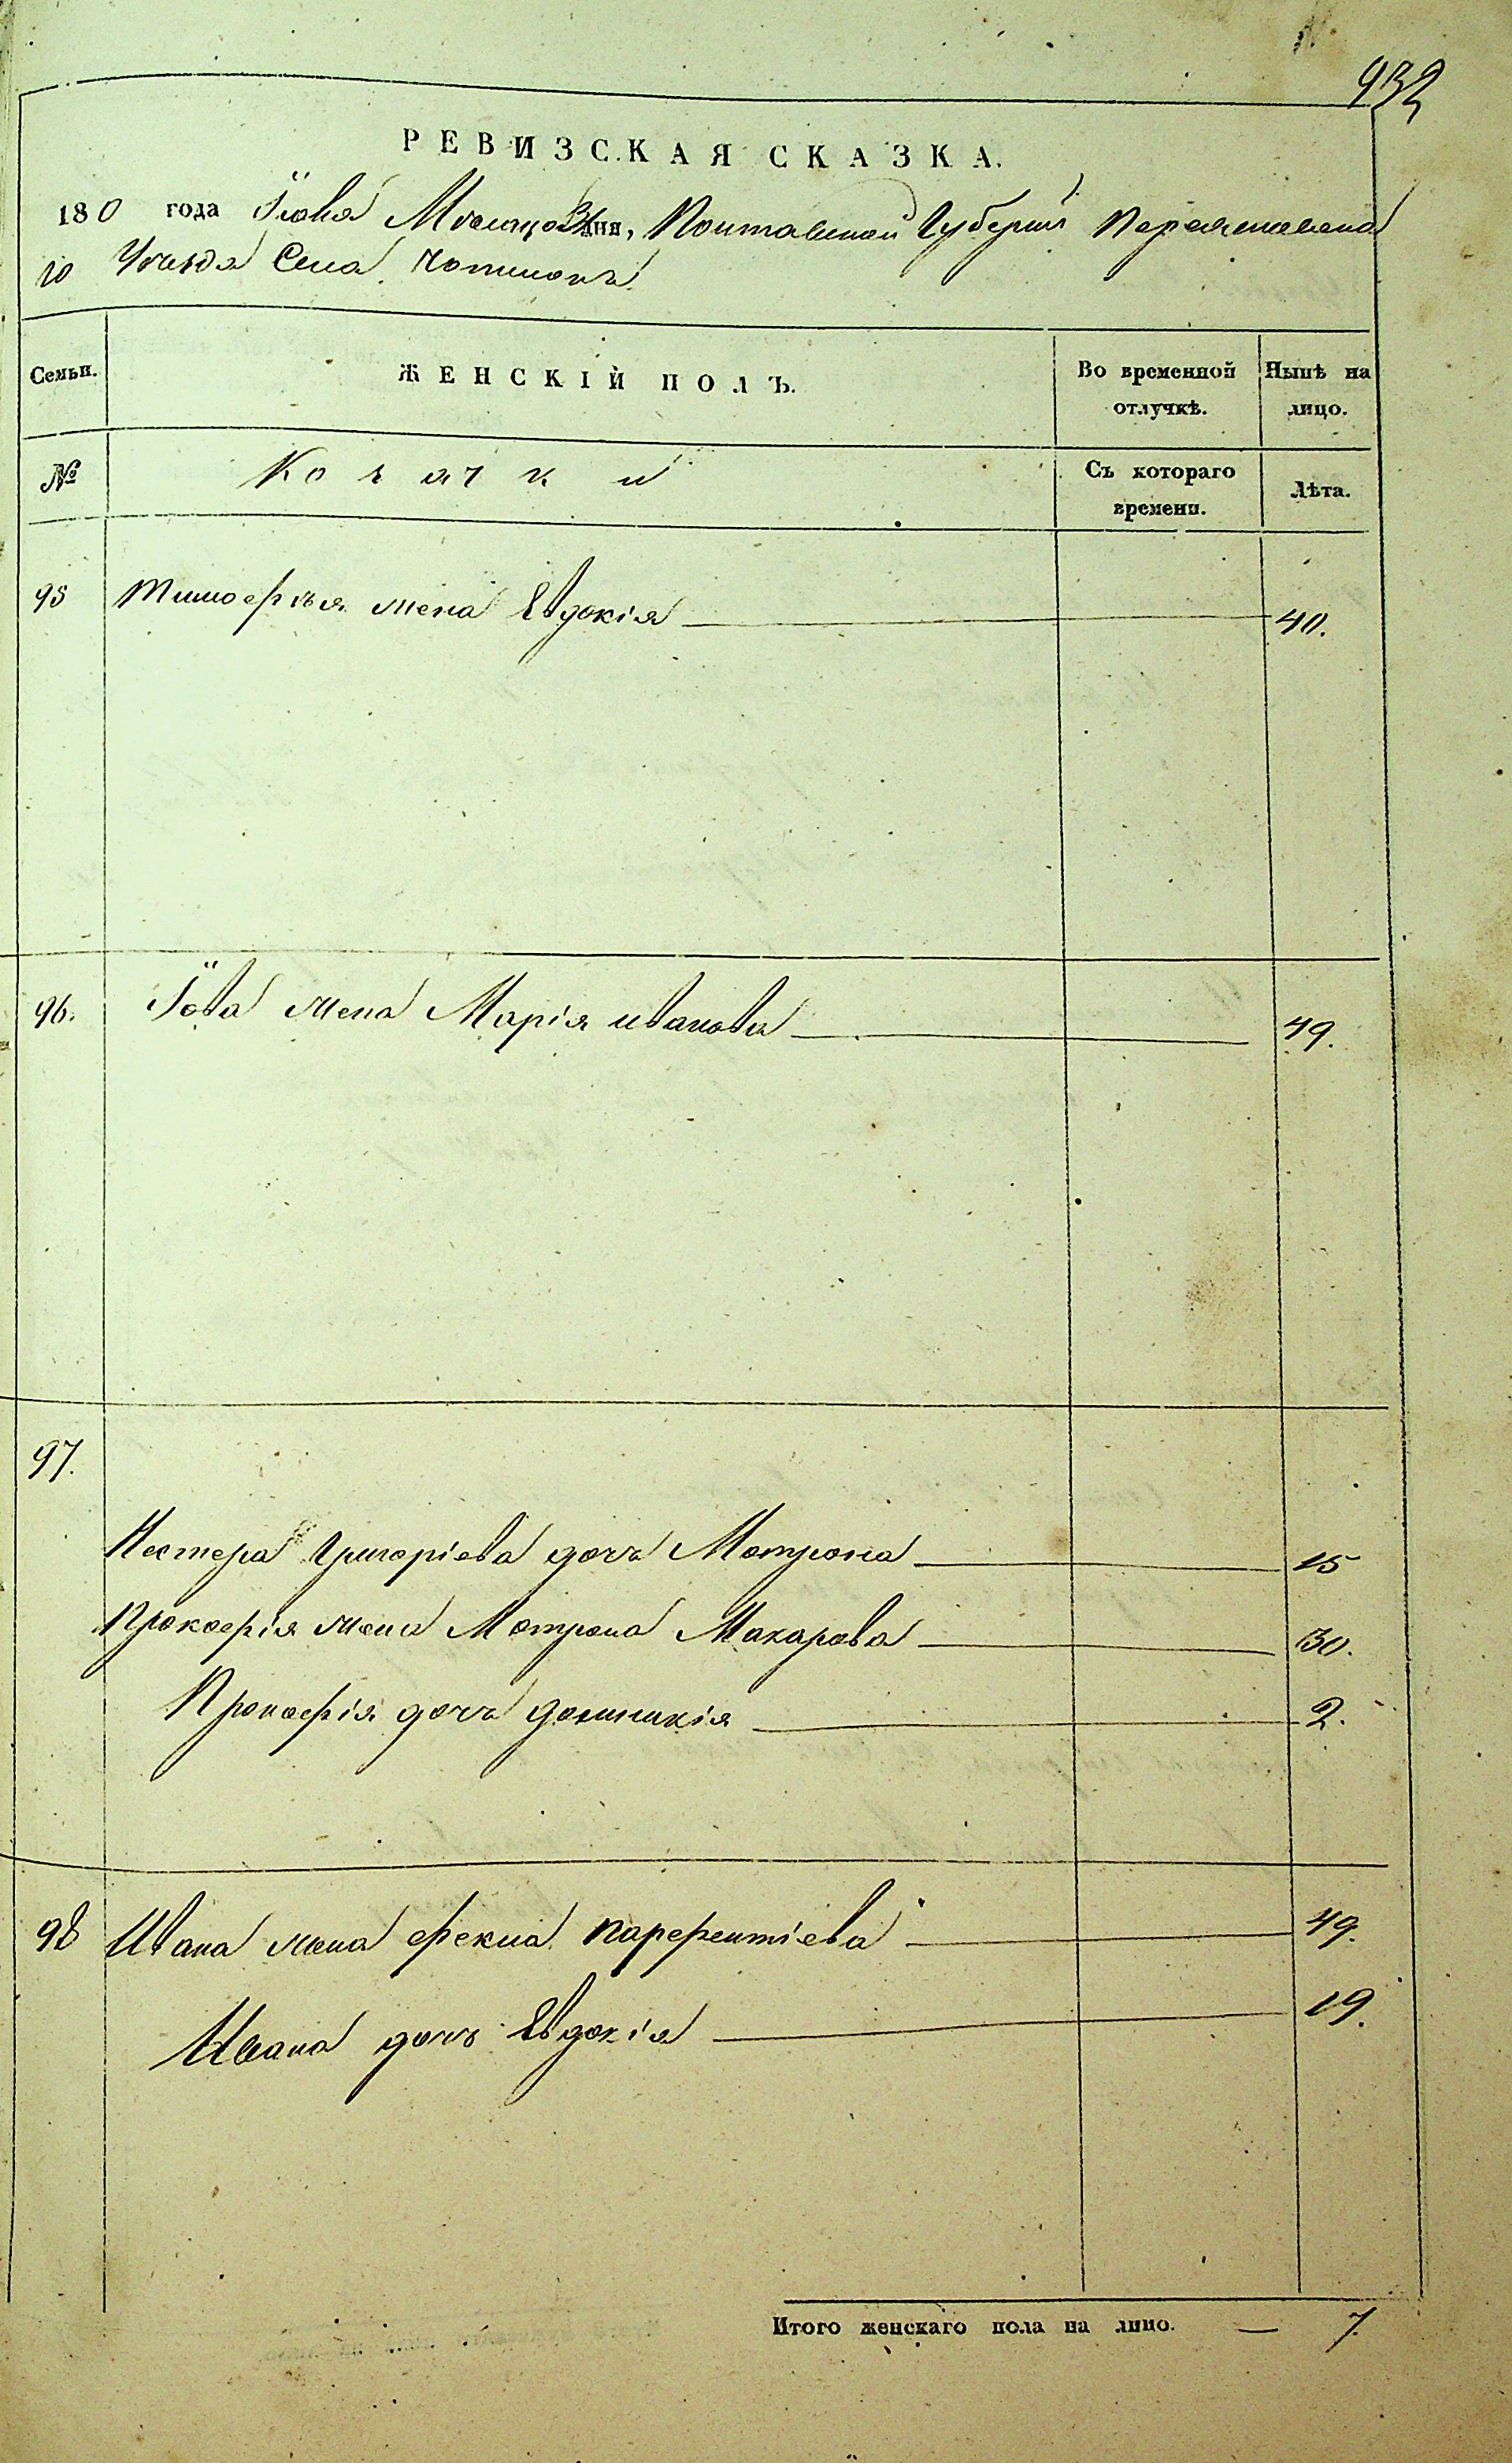 932
РЕВИЗСКАЯ СКАЗКА.
180 года Іюня Мѣсяца дня, Полтавской Губерніи Переяславска
го Уѣзда Села
Семьи. ЖЕНСКІЙ ПОЛЪ. Во временной отлучкѣ. Нынѣ на лицо.
№ Козачки Съ котораго времени. Лѣта.
95 Тимофѣя жена Евдокія 40.
96. Іова жена Марія иванова 49.
97.
Нестера Григоріева дочь Мотрона 15
Прокофія жена Мотрона Макарова 30.
Прокофія дочь Домникія 2.
98 Ивана жена Фекла Парфентіева 49.
Ивана дочь Евдокія 19.
Итого женскаго пола на лицо. — 7.